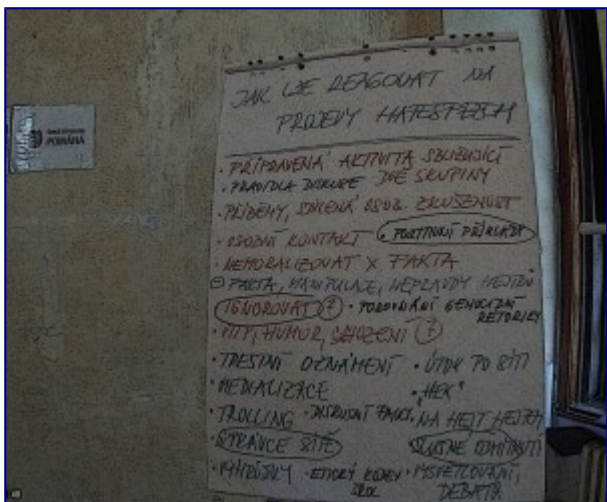 JAK LZE REAGOVAT NA
PROJEVY HATESPEECH
• PŘIPRAVENÁ AKTIVITA SBLIŽUJÍCÍ
• PRAVIDLA DISKUSE DVĚ SKUPINY
• PŘÍBĚHY, SDÍLENÁ OSOB. ZKUŠENOST
• OSOBNÍ KONTAKT • POZITIVNÍ PŘÍKLADY
• NEMORALIZOVAT X FAKTA
FAKTA, MANIPULACE, NEPRAVDY
IGNOROVAT ? • POROVNÁNÍ GENOCIDNÍ
RETORIKY
VTIP, HUMOR, SHOZENÍ ?
• TRESTNÍ OZNÁMENÍ • ÚTOK PO SÍTI
• MEDIALIZACE • "HEK"
• TROLLING • DISKUSNÍ • NA HEJT HEJTEM
• STRÁVCE SÍTĚ SLUŠNÉ ODMÍTNUTÍ
• ETICKÝ KODEX • VYSVĚTLOVÁNÍ,
ŠKOL DEBATA
POMÁHÁ